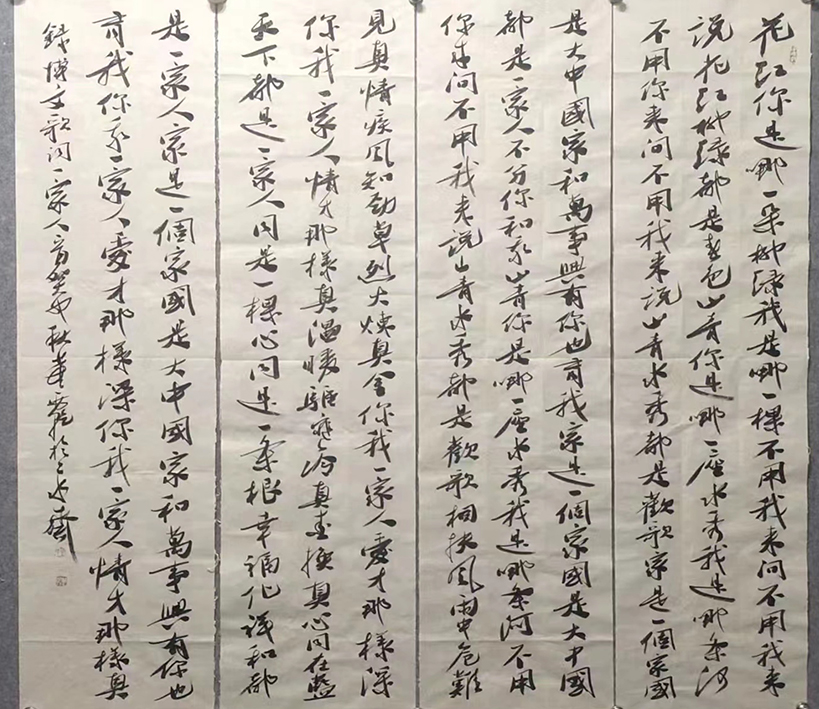 花红你是哪一朵柳绿我是哪一棵不用我来问不用我来
说花红柳绿都是春色山青你是哪一座水秀我是哪条河
不用你来问不用我来说山青水秀都是歡歌家是一個家國
是大中國家和萬事興有你也有我家是一個家國是大中國
都是一家人不分你和我山青你是哪一座水秀我是哪条河不用
你来问不用我来说山青水秀都是歡歌相扶風雨中危難
見真情疾風知勁草烈火煉真金你我一家人愛才那樣深
你我一家人情才那樣真温暖驅寒冷真金換真心同在藍
天下都是一家人同是一棵心同是一条根幸福化诚和都
是一家人家是一個家國是大中國家和萬事興有你也
有我你我一家人愛才那樣深你我一家人情才那樣真
録博文歌词一家人